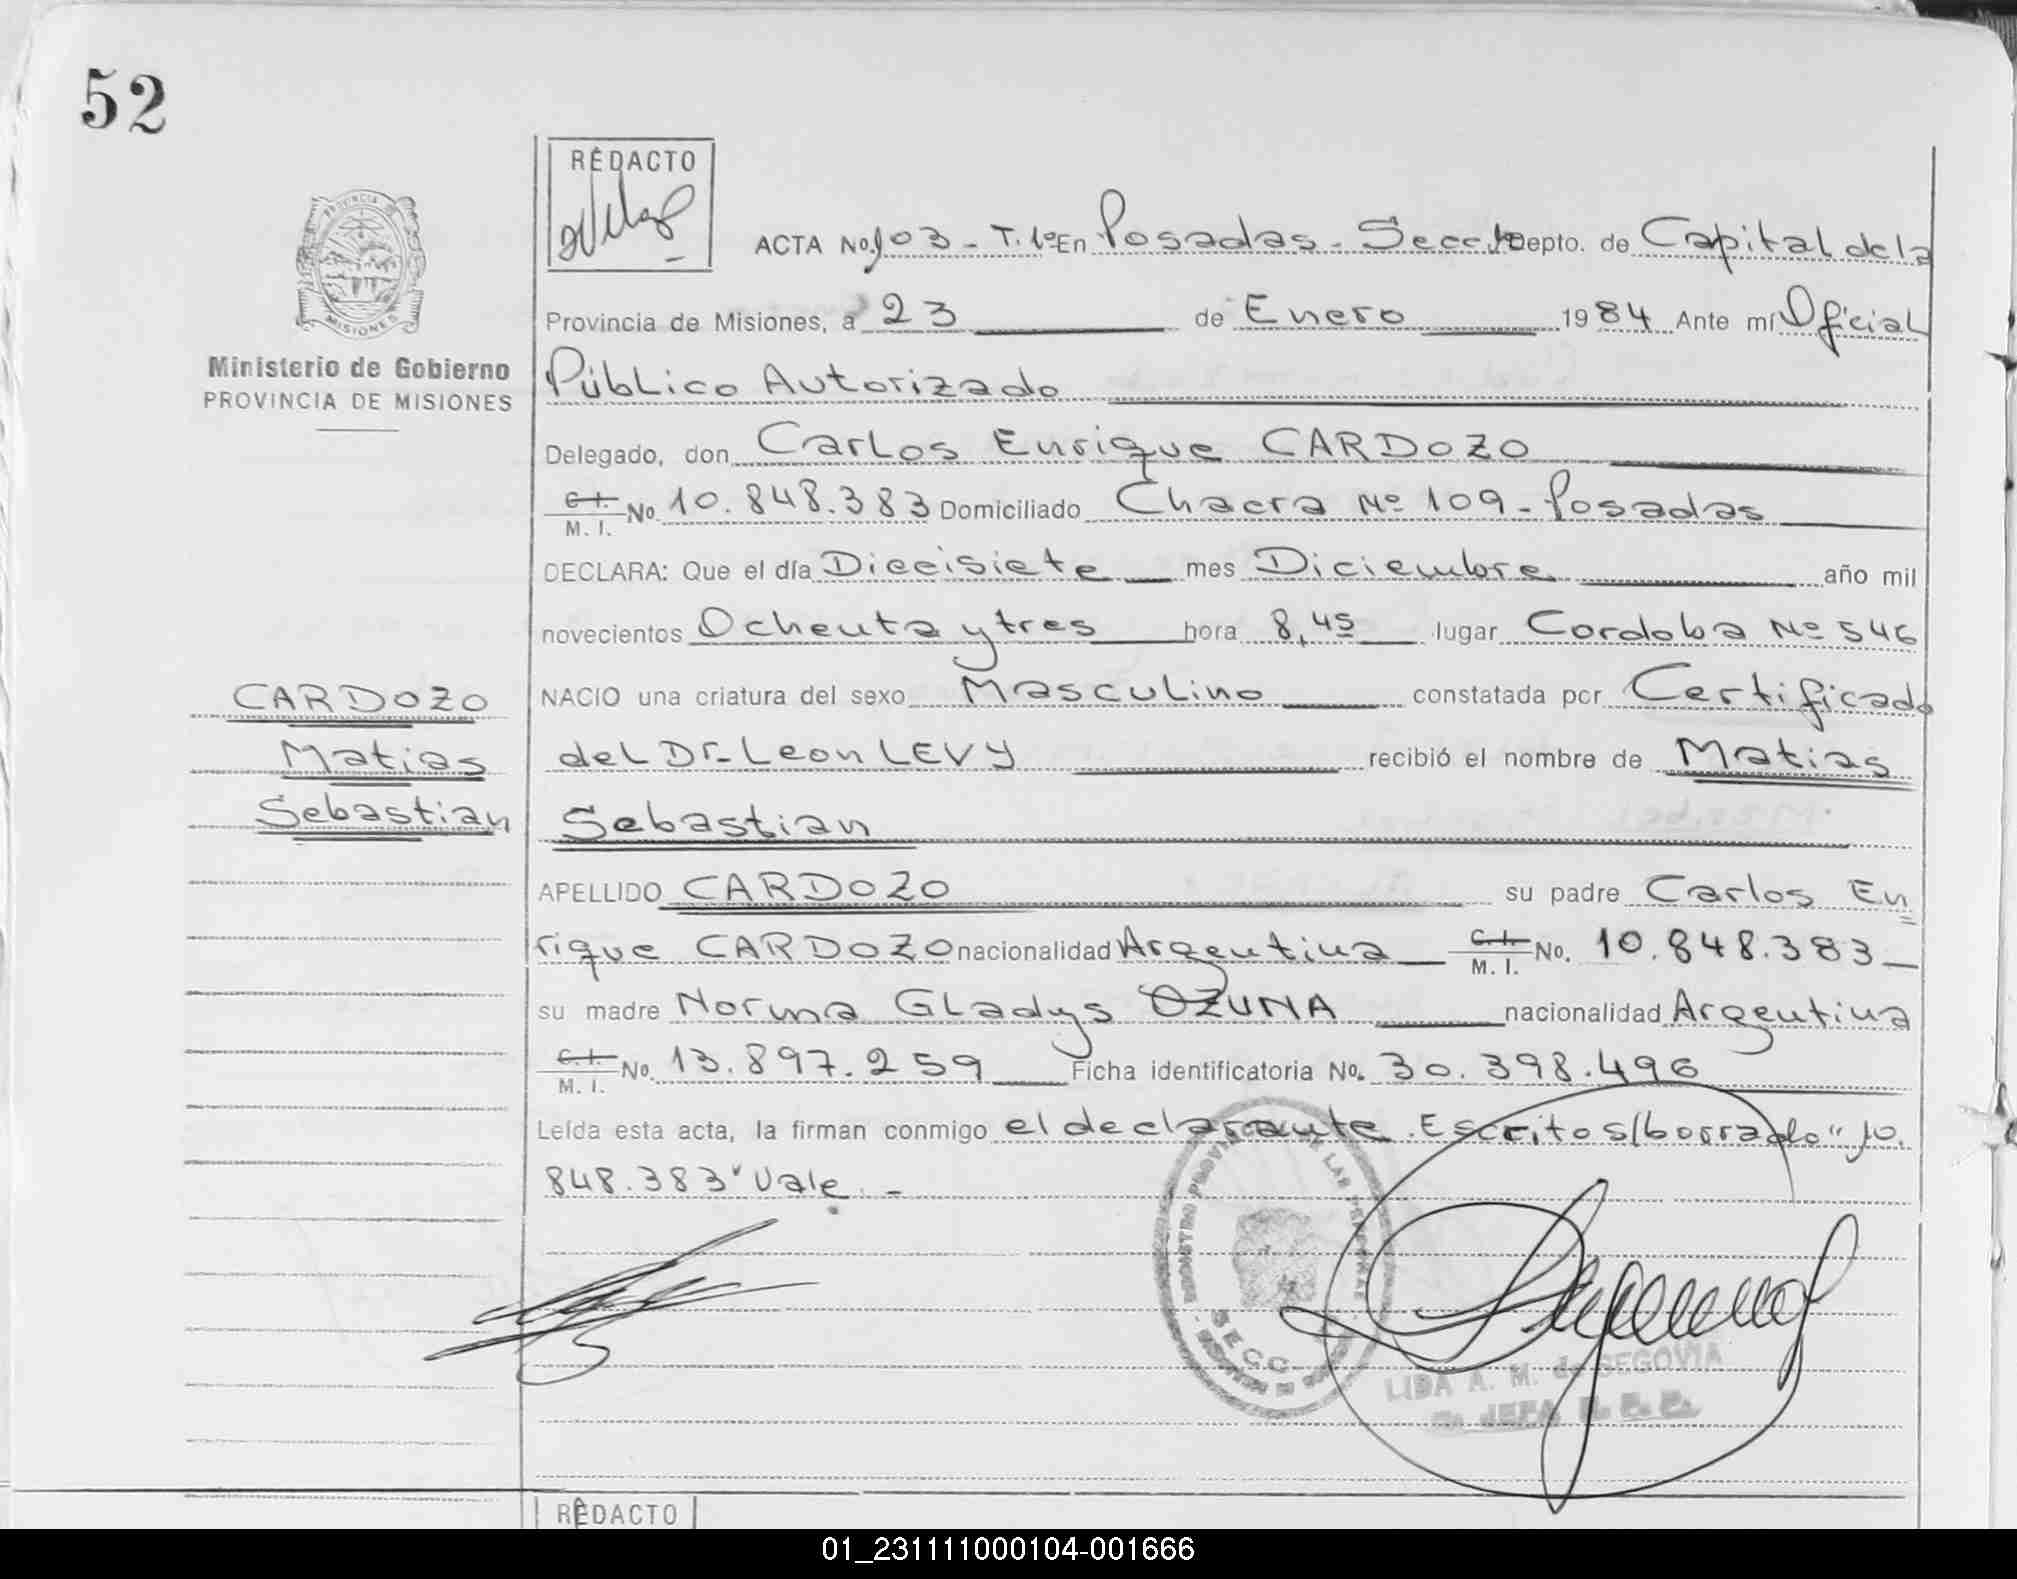 52
REDACTO
PROVINCIA DE
MISIONES
Ministerio de Gobierno
PROVINCIA DE MISIONES
ACTA No. 103 - T. 1º En Posadas - Secc. 1ª Depto. de Capital de la
Provincia de Misiones, a 23 de Enero 1984 Ante mí Oficial
Público Autorizado
Delegado, don Carlos Enrique CARDOZO
C. I. M. I. No. 10.848.383 Domiciliado Chacra Nº 109 - Posadas
DECLARA: Que el día Diecisiete mes Diciembre año mil
novecientos Ochenta y tres hora 8,45 lugar Cordoba Nº 546
NACIO una criatura del sexo Masculino constatada por Certificado
del Dr. Leon LEVY recibió el nombre de Matias
Sebastian
CARDOZO
Matias
Sebastian
APELLIDO CARDOZO su padre Carlos En
rique CARDOZO nacionalidad Argentina C. I. M. I. No. 10.848.383
su madre Norma Gladys OZUNA nacionalidad Argentina
C. I. M. I. No. 13.897.259 Ficha identificatoria No. 30.398.496
Leída esta acta, la firman conmigo el declarante. Escrito s/borrado "10.
848.383" Vale. -
REGISTRO PROVINCIAL DE LAS PERSONAS
SECC.
LIDA A. M. de SEGOVIA
JEFA
REDACTO
01_231111000104-001666